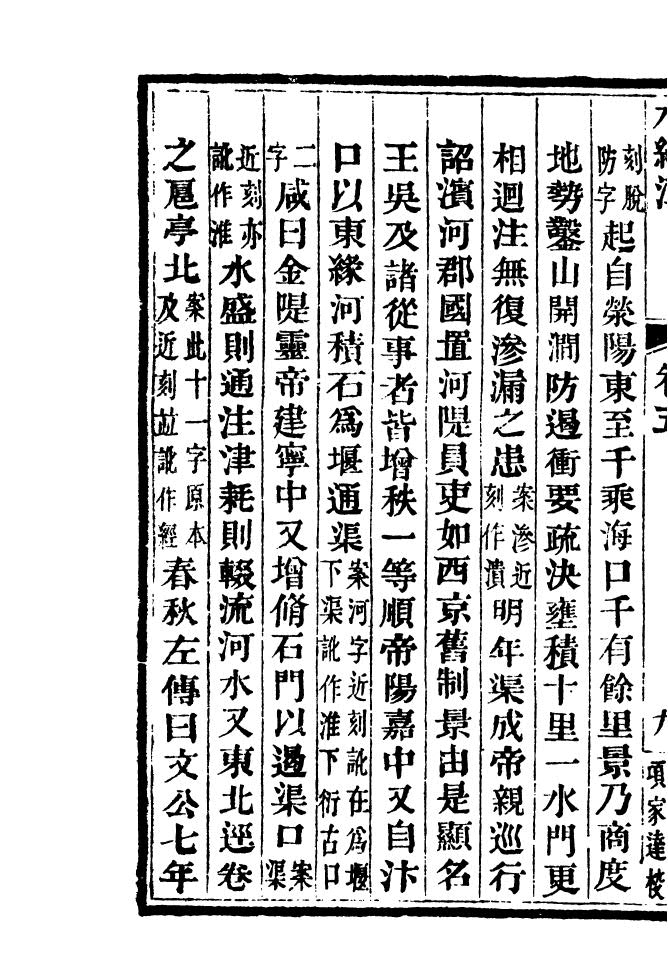 水經注 卷五 九 項家達校
刻脫防字起自滎陽東至千乘海口千有餘里景乃商度
地勢鑿山開澗防遏衝要疏決壅積十里一水門更
相迴注無復滲漏之患案滲近刻作潰明年渠成帝親巡行
詔濱河郡國置河隄員吏如西京舊制景由是顯名
王吳及諸從事者皆增秩一等順帝陽嘉中又自汴
口以東緣河積石為堰通渠案河字近刻訛在為堰下渠訛作淮下衍古口
二字咸曰金隄靈帝建寧中又增脩石門以遏渠口案渠
近刻亦訛作淮水盛則通注津耗則輟流河水又東北逕卷
之扈亭北案此十一字原本及近刻竝訛作經春秋左傳曰文公七年